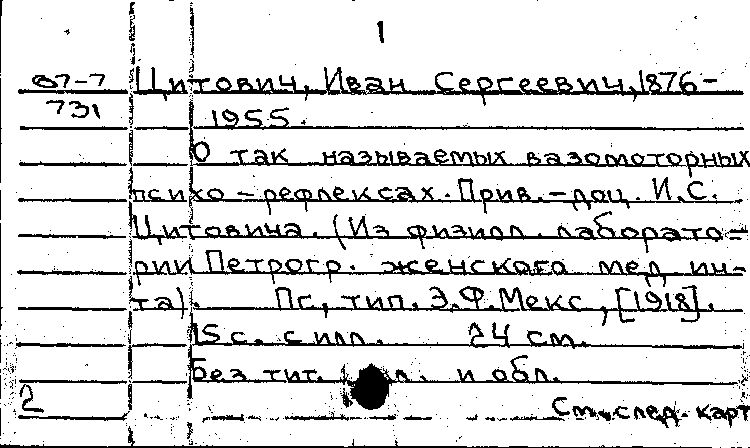 1
87-7 Цитович, Иван Сергеевич, 1876-
731 1955.
О так называемых вазомоторных
психо-рефлексах. Прив.-доц. И.С.
Цитовича. (Из физиол. лаборато-
рии Петрогр. женского мед. ин-
та). Пг., тип. Э.Ф. Мекс, [1918].
15 с. с илл. 24 см.
Без тит. л. и обл.
2 См. след. карт